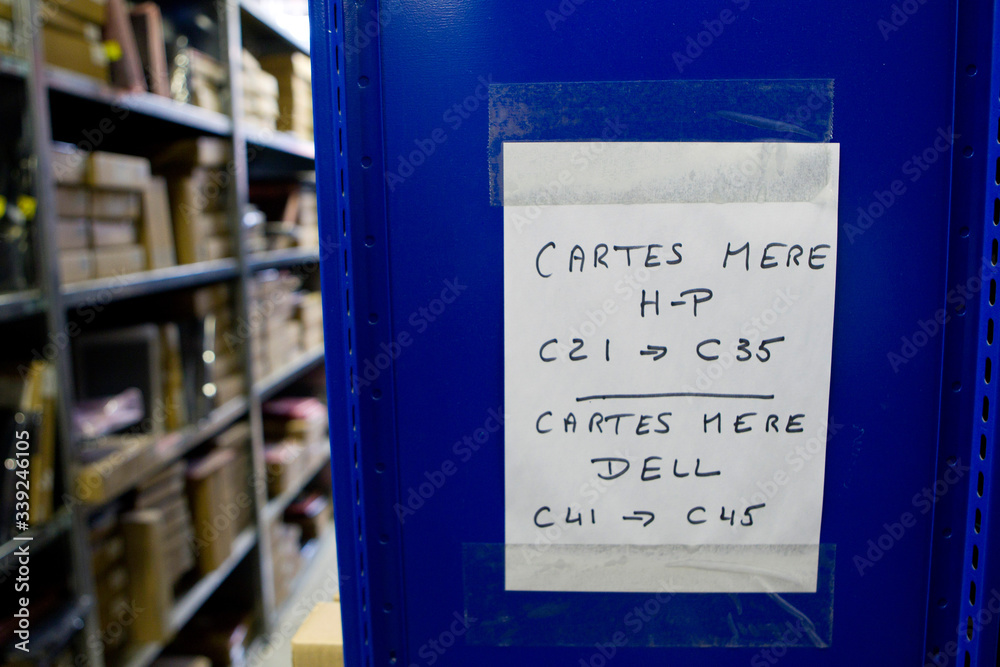 CARTES MERE
H-P
C21 → C35
CARTES MERE
DELL
C41 → C45
Adobe Stock | #339246105